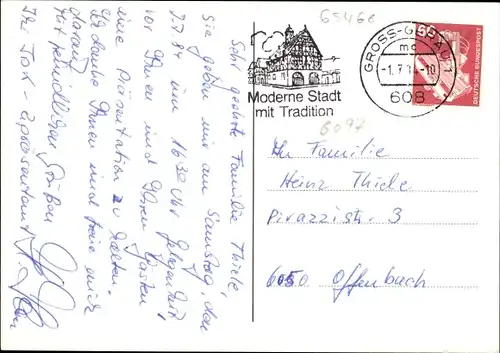 65468
Moderne Stadt
mit Tradition
GROSS-GERAU 1
mc
-1.7.84-10
608
DEUTSCHE BUNDESPOST
6097
Sehr geehrte Familie Thiele,
Sie geben mir am Samstag den
7.7.84 um 16.30 Uhr Gelegenheit
vor Ihnen und Ihren Gästen
eine Präsentation zu halten.
Ich danke Ihnen und freue mich
darauf
Mit freundlichen Grüßen
Ihr
An Familie
Heinz Thiele
Pirazzistr. 3
6050 Offenbach